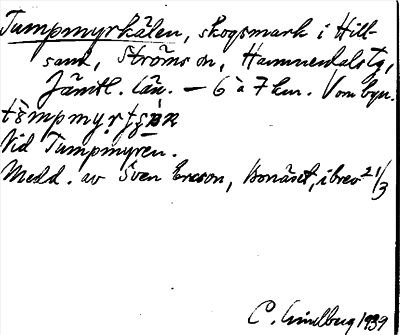 Tumpmyrkälen, skogsmark i Hill-
sand, Ströms sn, Hammerdals tg,
Jämtl. län. — 6 à 7 km. V om byn.
Vid Tumpmyren.
Medd. av Sven Ericson, Bonäset, i brev 21/3
C. Lindberg 1939